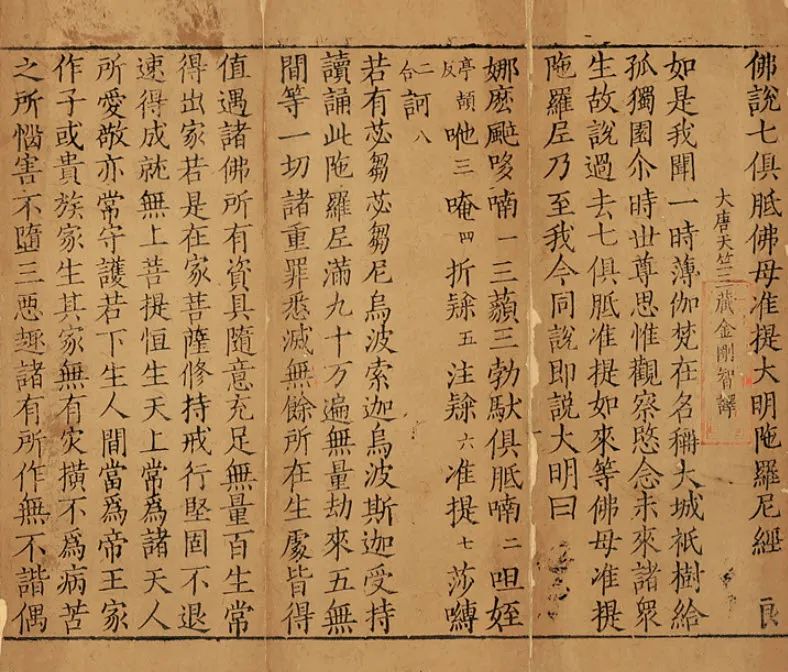 佛說七俱胝佛母准提大明陁羅尼經 良
大唐天竺三藏金剛智譯
如是我聞一時薄伽梵在名稱大城祇樹給
孤獨園尒時世尊思惟觀察愍念未來諸衆
生故說過去七俱胝准提如來等佛母准提
陁羅尼乃至我今同說即說大明曰
娜麽颯哆喃一三藐三勃馱俱胝喃二呾姪
亭頡反他三唵四折𨽁五注𨽁六准提七莎嚩
二合訶八
若有苾芻苾芻尼烏波索迦烏波斯迦受持
讀誦此陁羅尼滿九十万遍無量劫來五無
間等一切諸重罪悉滅無餘所在生處皆得
值遇諸佛所有資具隨意充足無量百生常
得出家若是在家菩薩修持戒行堅固不退
速得成就無上菩提恒生天上常爲諸天人
所愛敬亦常守護若下生人間當爲帝王家
作子或貴族家生其家無有灾橫不爲病苦
之所惱害不墮三惡趣諸有所作無不諧偶